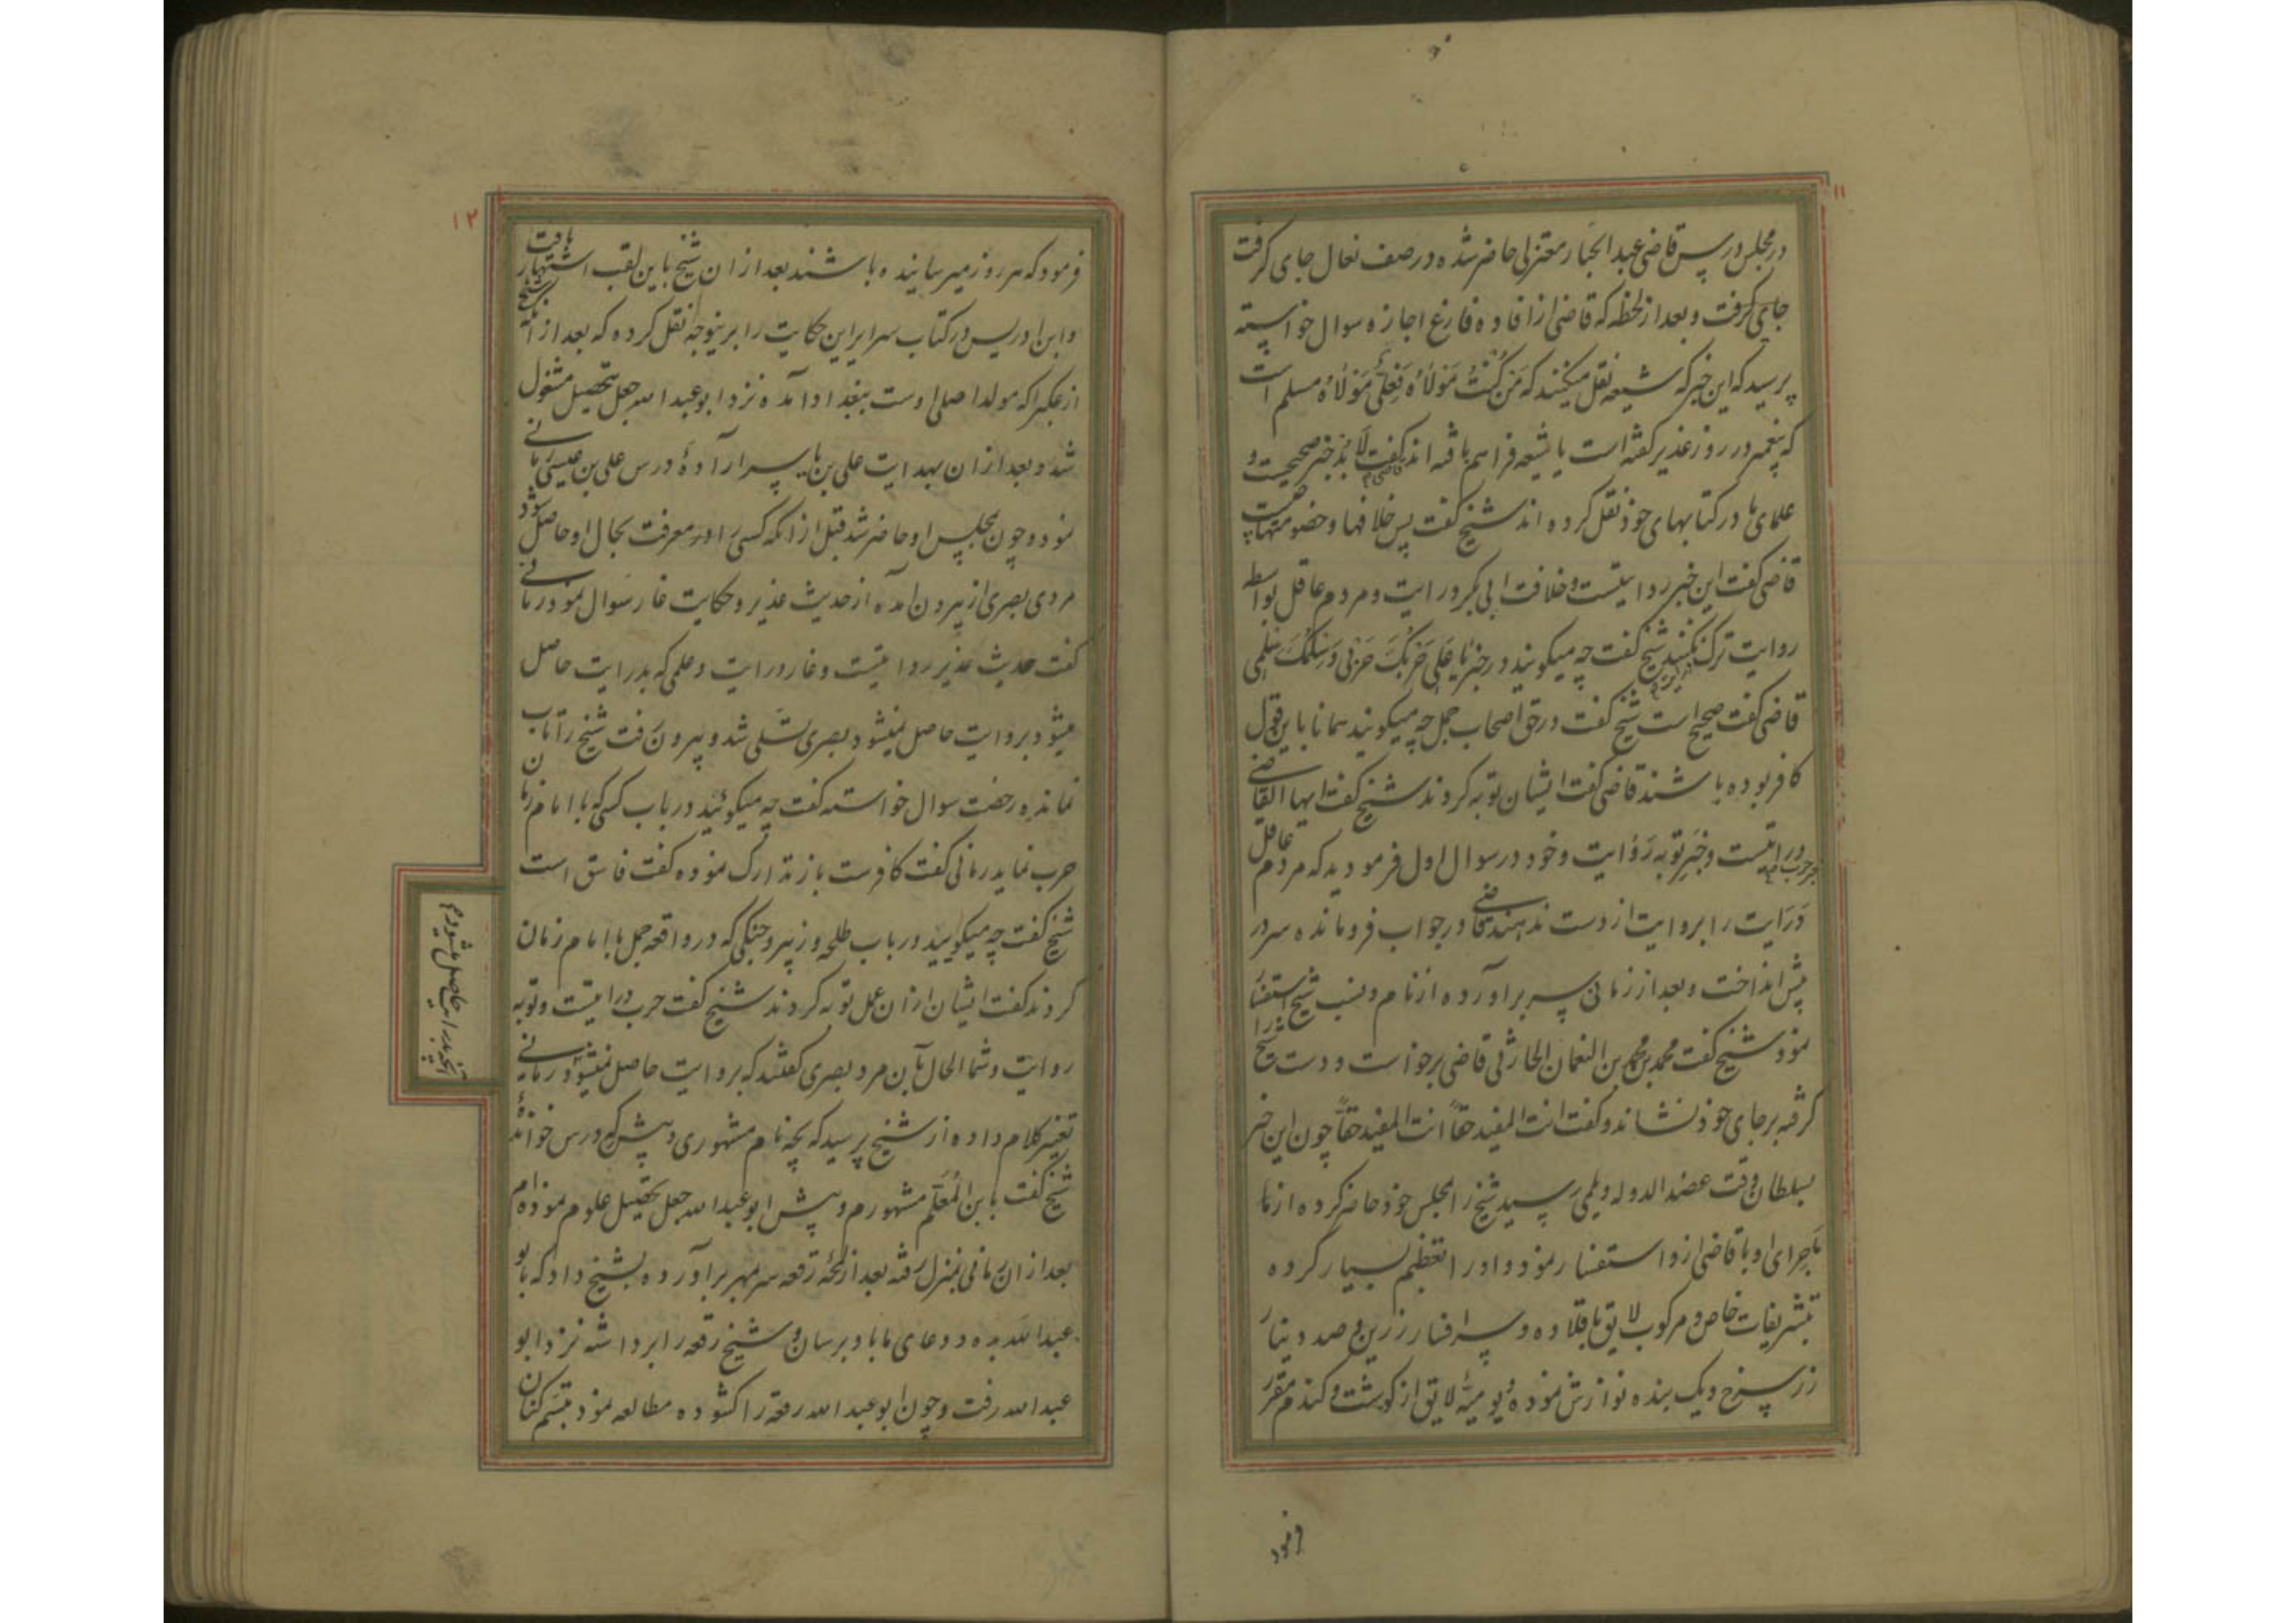 ۱۱
در مجلس درس قاضی عبد الجبار معتزلی حاضر شده در صف نعال جای گرفت
جای گرفت و بعد از لحظه که قاضی از افاده فارغ اجازه سوال خواسته
پرسید که این خبر که شیعه نقل میکنند که مَن کُنتُ مَولاهُ فَعَلیٌّ مَولاهُ مسلم است
که پیغمبر در روز غدیر گفته است یا شیعه فراهم بافته اند قاضی گفت لا بُد خبر صحیحست و
علمای ما در کتابهای خود نقل کرده اند شیخ گفت پس خلافها و خصومتها چیست
قاضی گفت این خبر روایتست و خلافت ابی بکر درایت و مردم عاقل بواسطه
روایت ترک نکنند شیخ گفت چه میگویند در خبر یا عَلی حَربُکَ حَربی و سِلمُکَ سِلمی
قاضی گفت صحیح است شیخ گفت در حق اصحاب جمل چه میگویند همانا باین قول
کافر بوده باشند قاضی گفت ایشان توبه کردند شیخ گفت ایها القاضی
حرب درایتست و خبرِ توبه رَوایت و خود در سوال اول فرمودید که مردم عاقل
دَرَایت را بروایت از دست ندهند قاضی در جواب فرومانده سر در
پیش انداخت و بعد از زمانی سر براورده از نام و نسب شیخ استفسار
نمود شیخ گفت محمد بن محمد بن النعمان الحارثی قاضی برخواست و دست شیخ را
گرفته بر جای خود نشاند و گفت انت المفید حقاً انت المفید حقاً چون این خبر
بسلطان وقت عضد الدوله دیلمی رسید شیخ را بمجلس خود حاضر کرده از
ماجرای او با قاضی از و استفسار نمود و او را تعظیم بسیار کرده
بتشریفات خاص و مرکوب لایق با قلاده و سرافسار زرین و صد دینار
زر سرخ و یک بنده نوازش نموده و یومیّهٔ لایق از گوشت و گندم مقرر
فرمود
۱۲
فرمود که هر روز میرسانیده باشند بعد از ان شیخ باین لقب اشتهار یافت
و ابن ادریس در کتاب سرایر این حکایت را برینوجه نقل کرده که بعد از آنکه شیخ
از عکبرا که مولد اصلی اوست ببغداد آمده نزد ابو عبد الله جعل بتحصیل مشغول
شد و بعد از ان بهدایت علی بن یاسر ارادهٔ درس علی بن عیسی رمانی
نمود و چون بمجلس او حاضر شد قبل از انکه کسی را ور معرفت بحال او حاصل شود
مردی بصری از بیرون آمده از حدیث غدیر و حکایت غار سوال نمود رمانی
گفت حدیث غدیر روایتست و غار درایت و علمی که بدرایت حاصل
میشود بروایت حاصل نمیشود بصری تسَلی شد و بیرون رفت شیخ را تاب
نمانده رخصت سوال خواسته گفت چه میگوئید در باب کسی که با امام زمان
حرب نماید رمانی گفت کافرست باز تدارک نموده گفت فاسق است
شیخ گفت چه میگویید در باب طلحه و زبیر و جنگی که در واقعه جمل با امام زمان
کردند گفت ایشان از ان عمل توبه کردند شیخ گفت حرب درایتست و توبه
روایت و شما الحال بآن مرد بصری گفتند که بروایت حاصل نمیشود رمانی
آنچه بدرایت حاصل میشود م
تغییر کلام داده از شیخ پرسید که بچه نام مشهوری و پیش که درس خواندهٔ
شیخ گفت بابن المُعَلّم مشهورم و پیش ابو عبد الله جعل تحصیل علوم نموده ام
بعد از ان رمانی بمنزل رفته بعد از لمحهٔ رقعه سر بمهر برآورده بشیخ داد که بابو
عبد الله بده و دعای ما باو برسان و شیخ رقعه را برداشته نزد ابو
عبد الله رفت و چون ابو عبد الله رقعه را گشوده مطالعه نمود تبسّم کنان